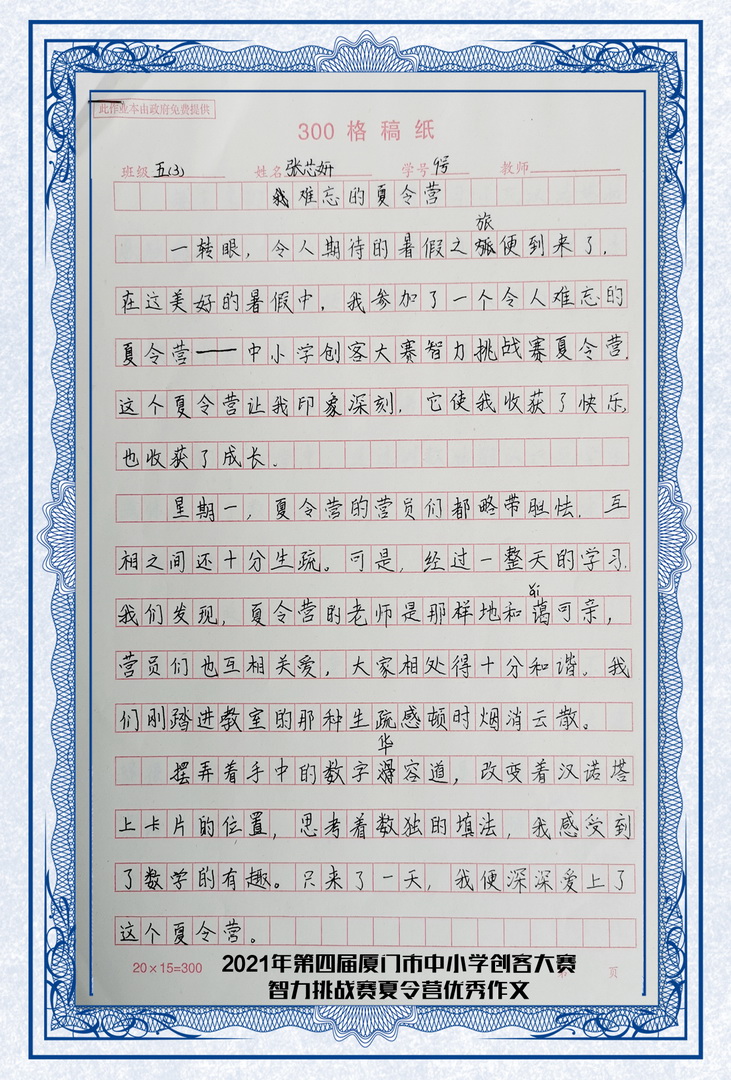 此作业本由政府免费提供
300 格 稿 纸
班级 五(3) 姓名 张芯妍 学号 9号 教师
我难忘的夏令营
旅
一转眼，令人期待的暑假之旅便到来了，
在这美好的暑假中，我参加了一个令人难忘的
夏令营——中小学创客大赛智力挑战赛夏令营，
这个夏令营让我印象深刻，它使我收获了快乐，
也收获了成长。
星期一，夏令营的营员们都略带胆怯，互
相之间还十分生疏。可是，经过一整天的学习，
ǎi
我们发现，夏令营的老师是那样地和蔼可亲，
营员们也互相关爱，大家相处得十分和谐。我
们刚踏进教室的那种生疏感顿时烟消云散。
华
摆弄着手中的数字容道，改变着汉诺塔
上卡片的位置，思考着数独的填法，我感受到
了数学的有趣。只来了一天，我便深深爱上了
这个夏令营。
20×15=300 第 页
2021年第四届厦门市中小学创客大赛
智力挑战赛夏令营优秀作文